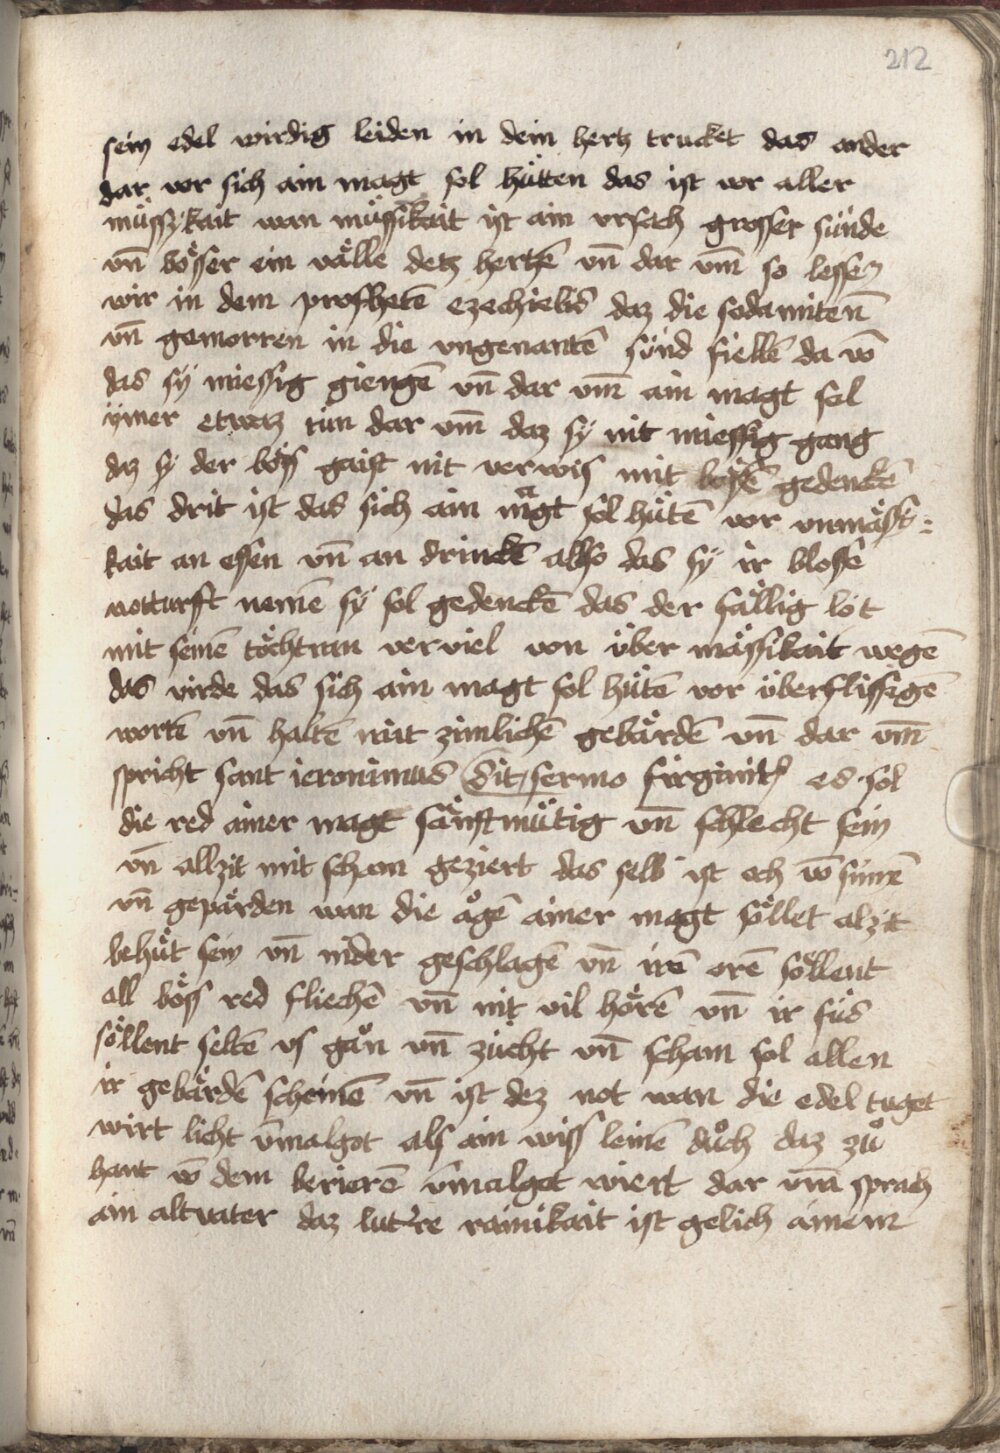 212
sein edel wirdig leiden in dein hertz trucket das ander
dar vor sich ain magt sol hütten das ist vor aller
müssykait wan müssikait ist ain vrsach grosser sünde
vn̄ bösser ein välle detz hertzē vn̄ dar vm̄ so lessen
wir in dem profhetē ezechielis daz die sodamitenn̄
vn̄ gomorren in die vngenantē sünd fiellē da vō
das sÿ miessig giengē vn̄ dar vm̄ ain magt sol
ÿmer etwaz tün dar vm̄ daz sÿ nit miessig gang
daz sÿ der böss gaist nit verwis mit bösē gedenckē
das drit ist das sich ain magt sol hütē vor vnmässi:
kait an essen vn̄ an drinckē also das sÿ ir blosse
notturfft nemē sÿ sol gedenckē das der sällig löt
mit seinē töchtran verviel von über mässikait wegē
das virde das sich ain magt sol hütē vor überflissigē
wortē vn̄ haltē mit zimlichē gebärdē vn̄ dar vm̄
spricht sant ieronimus dit sermo firginit es sol
die red ainer magt sänftmütig vn̄ schlecht sein
vn̄ allzit mit scham geziert das selb ist och vō sinnē
vn̄ gepärden wan die ågē ainer magt söllet alzit
behüt sein vn̄ nider geschlagē vn̄ irē orē söllent
all böss red fliechē vn̄ nit vil hörē vn̄ ir füs
söllent seltē vs gån vn̄ zücht vn̄ scham sol allen
ir gebärdē scheinē vn̄ ist dez not wan die edel tuget
wirt licht v̄malgot als ain wiss leinē důch daz zů
hant vō dem berierē v̄malget wiert dar vm̄ sprach
ain altvater daz lutre rainikait ist gelich ainem